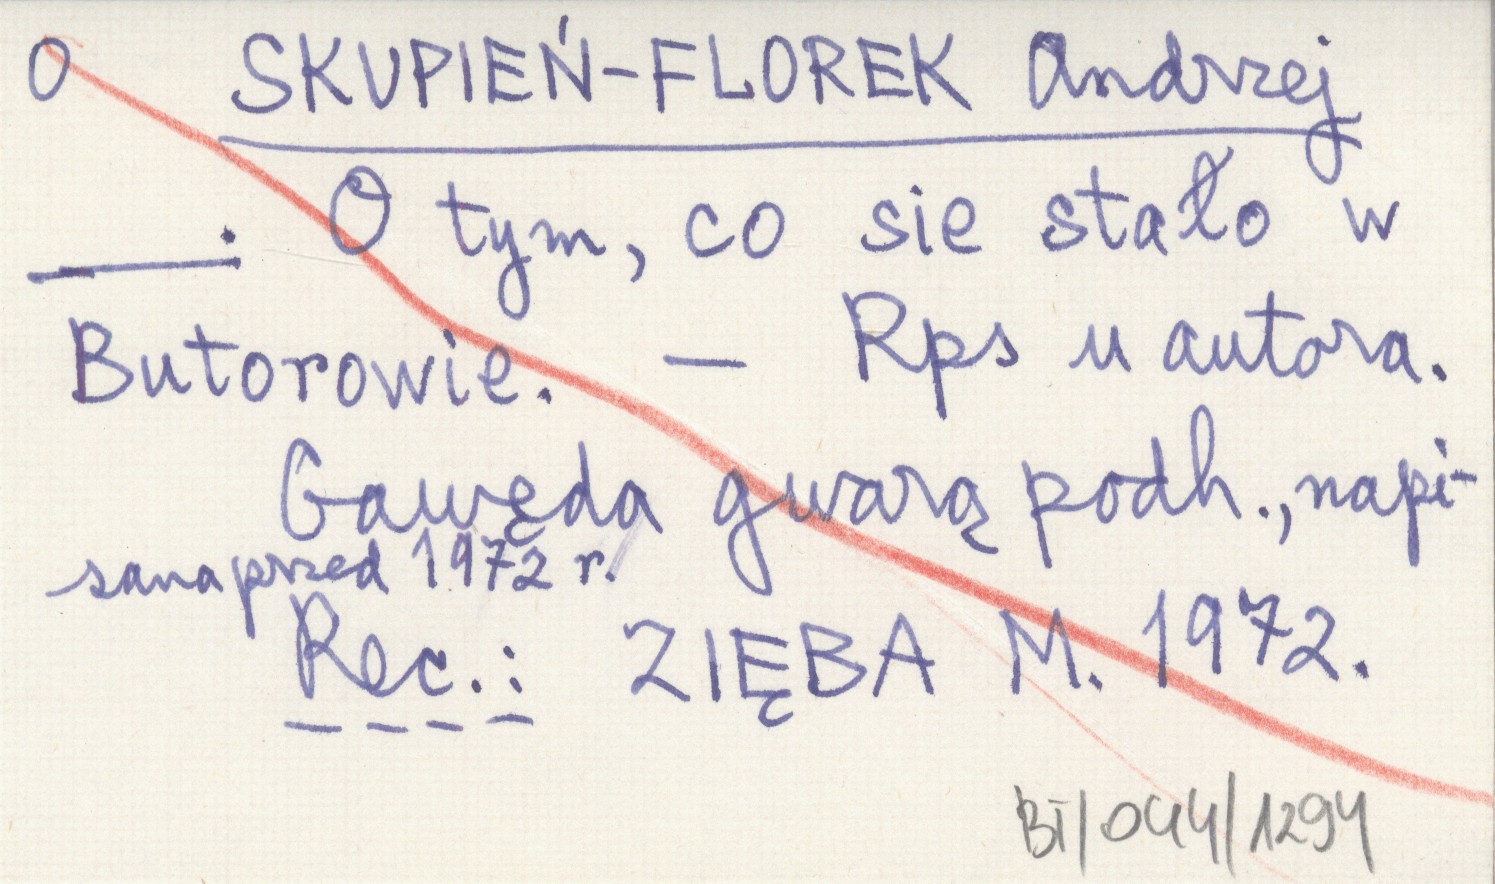 O SKUPIEŃ-FLOREK Andrzej
___. O tym, co sie stało w
Butorowie. — Rps u autora.
Gawęda gwarą podh., napi-
sana przed 1972 r.
Rec.: ZIĘBA M. 1972.
BT/044/1294